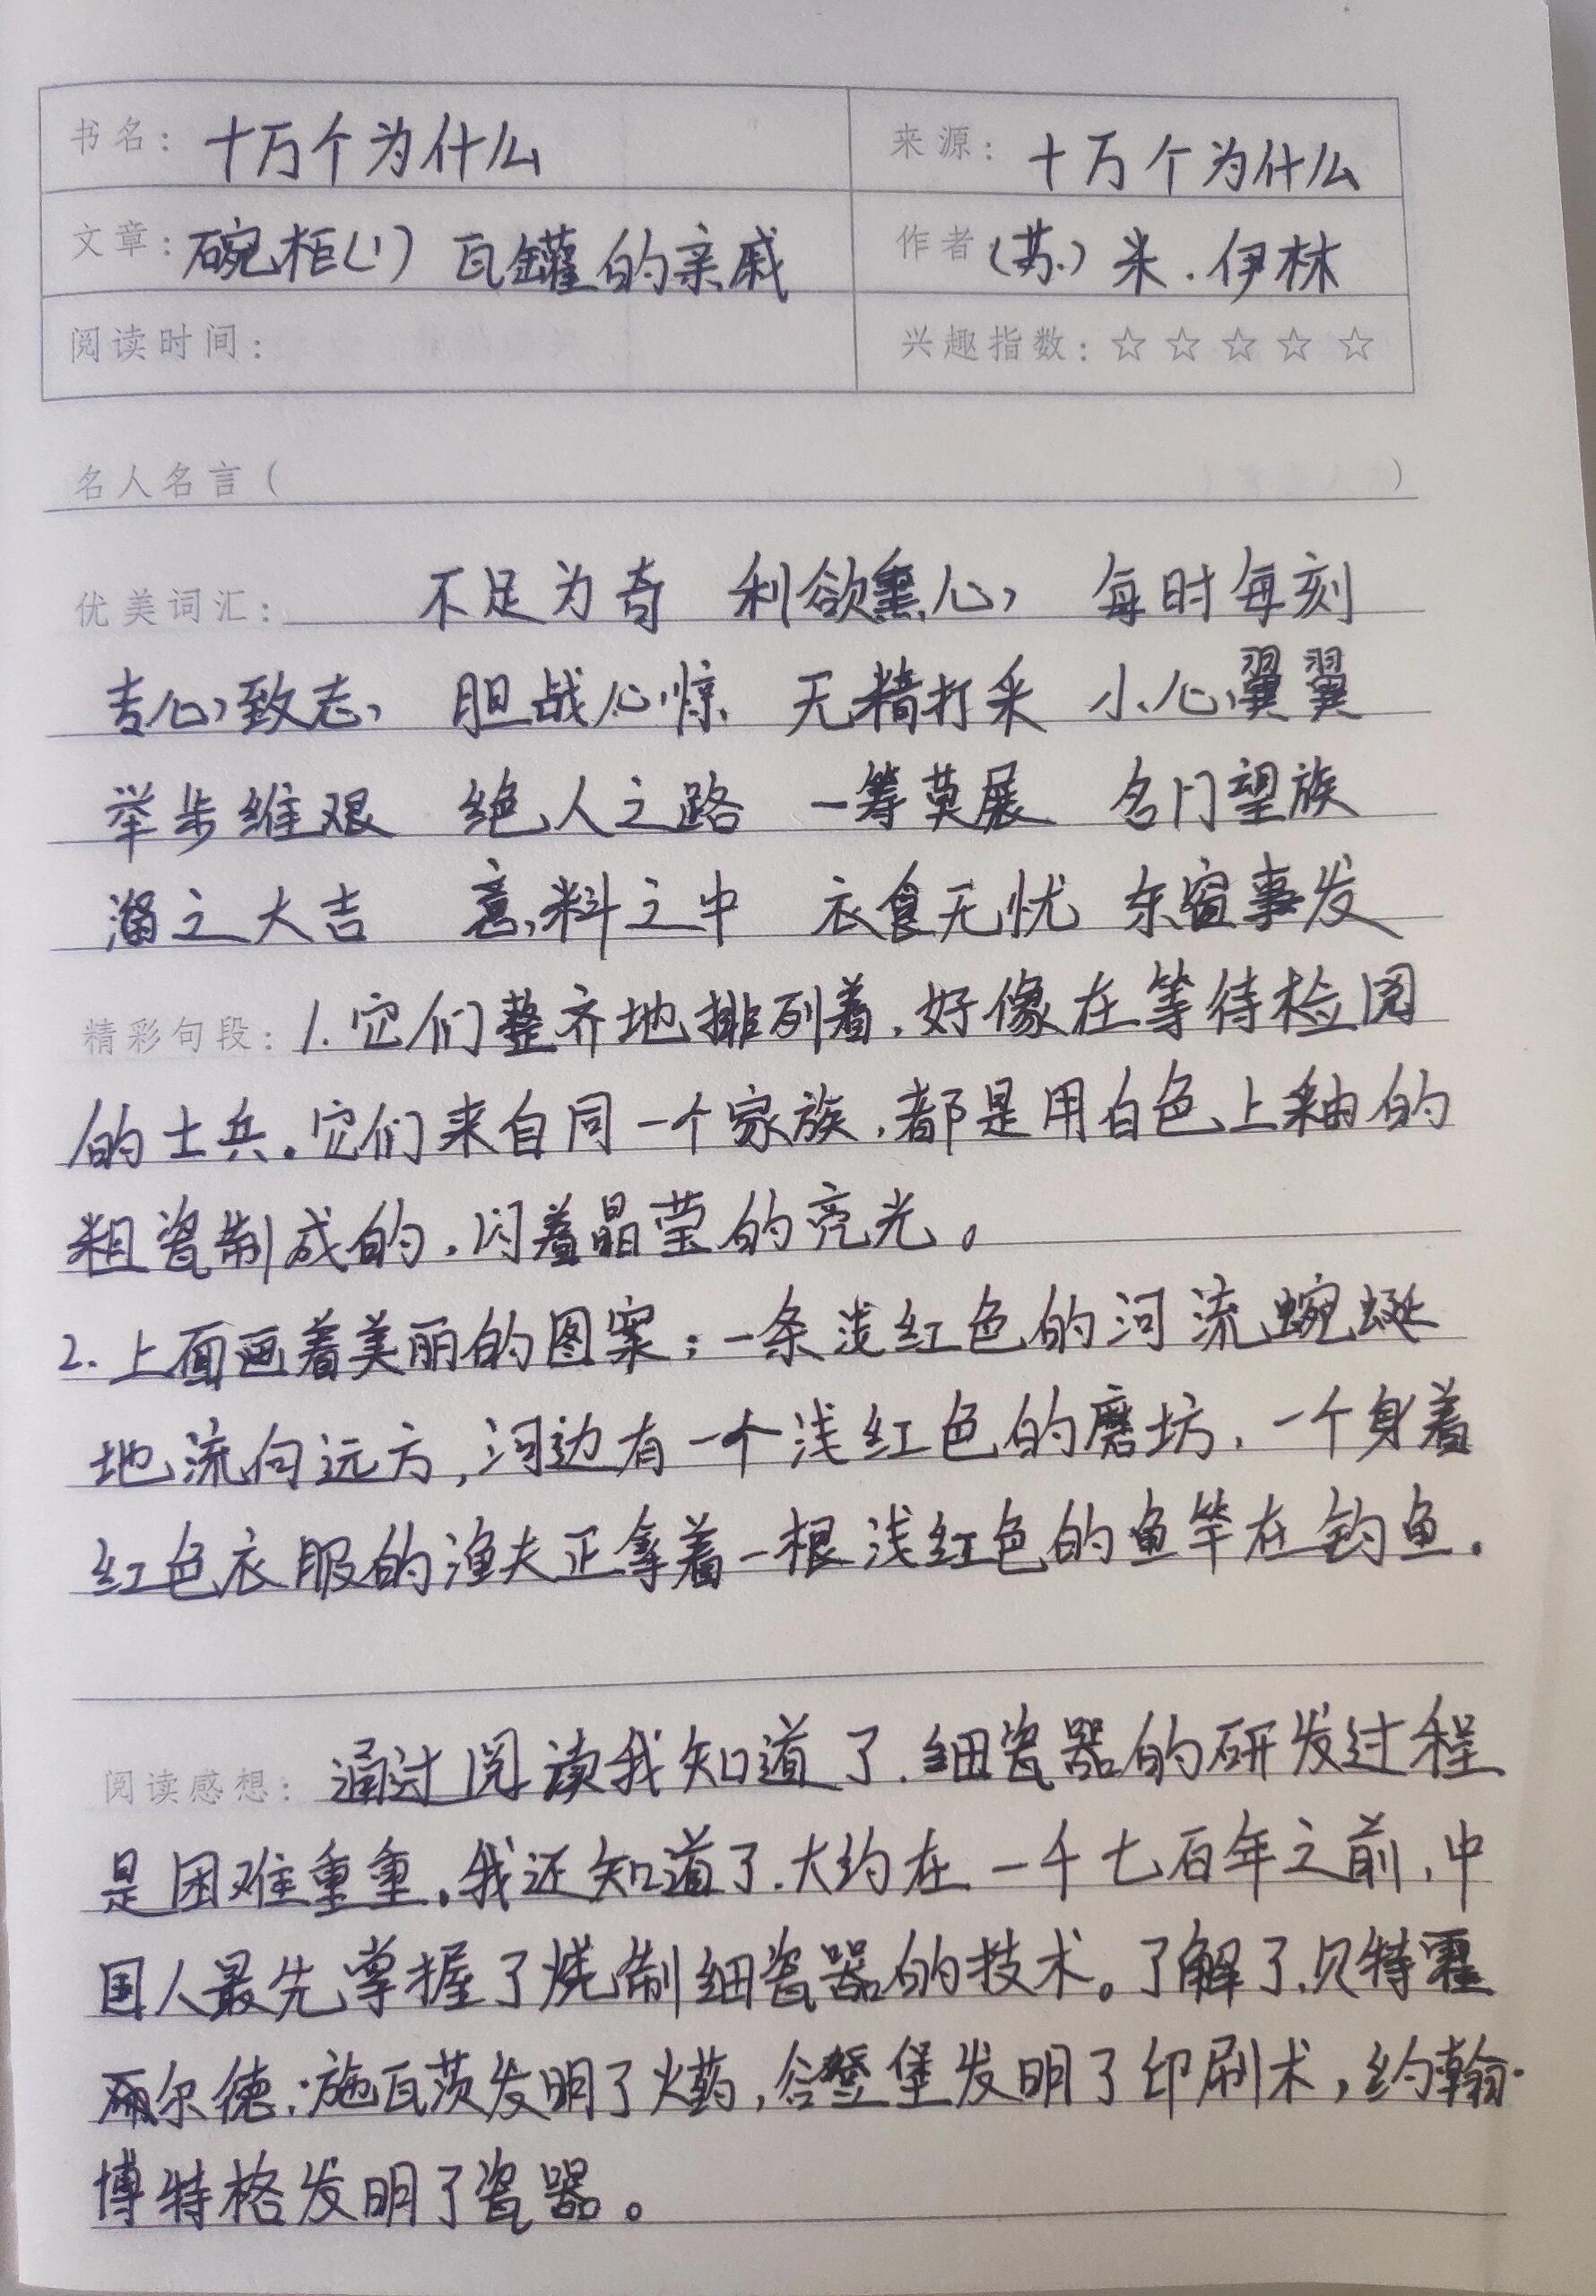 书名：十万个为什么 来源：十万个为什么
文章：碗柜(1) 瓦罐的亲戚 作者(苏)米.伊林
阅读时间： 兴趣指数：☆☆☆☆☆
名人名言（ ）
优美词汇： 不足为奇 利欲熏心 每时每刻
专心致志 胆战心惊 无精打采 小心翼翼
举步维艰 绝人之路 一筹莫展 名门望族
溜之大吉 意料之中 衣食无忧 东窗事发
精彩句段：1.它们整齐地排列着,好像在等待检阅
的士兵。它们来自同一个家族,都是用白色上釉的
粗瓷制成的,闪着晶莹的亮光。
2.上面画着美丽的图案；一条浅红色的河流蜿蜒
地流向远方,河边有一个浅红色的磨坊,一个身着
红色衣服的渔夫正等着一根浅红色的鱼竿在钓鱼.
阅读感想：通过阅读我知道了.细瓷器的研发过程
是困难重重。我还知道了.大约在一千七百年之前,中
国人最先掌握了烧制细瓷器的技术。了解了.贝特霍
丽尔德:施瓦茨发明了火药,谷登堡发明了印刷术,约翰·
博特格发明了瓷器。